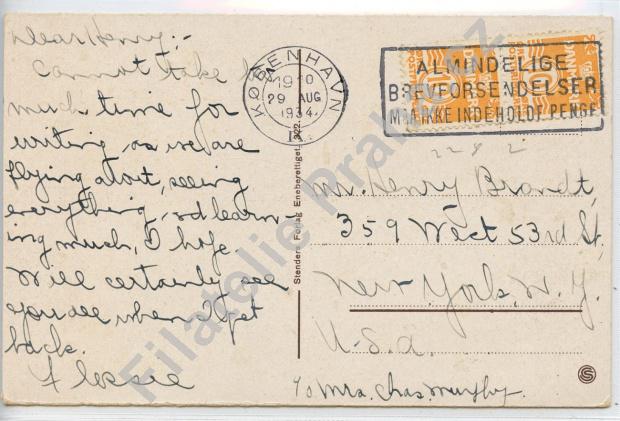 Dear Henry:-
Cannot take
much time for
writing as we are
flying about, seeing
everything, and learn-
ing much, I hope.
Will certainly see
you all when I get
back.
Flossie
KØBENHAVN
19 10
29 AUG
1934.
ALMINDELIGE
BREVFORSENDELSER
MAA IKKE INDEHOLDE PENGE
DANMARK
Stenders Forlag Eneberettiget. 322.
Mr. Henry Brandt,
359 West 53rd St,
New York, N.Y.
U.S.A.
c/o Mrs. Chas Murphy.
S
Filatelie Praha